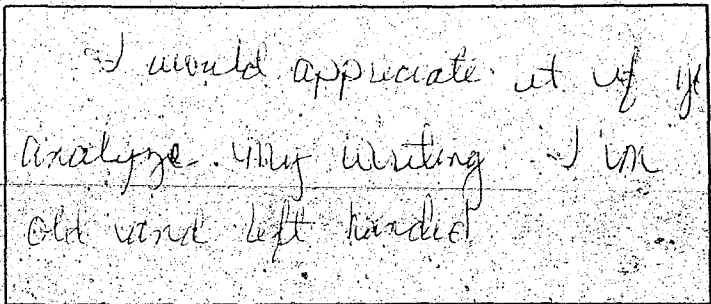 I would appreciate it if
analyze my writing I
old and left handed